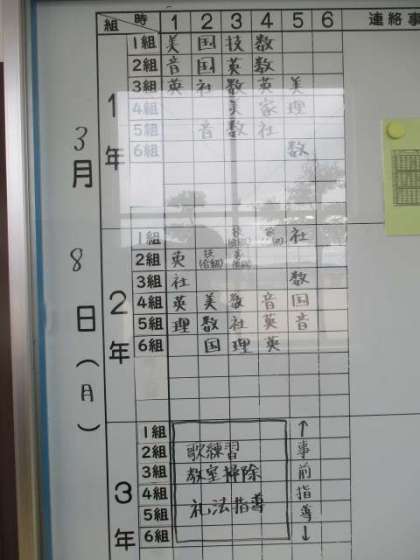 組 時 1 2 3 4 5 6 連絡事
3月8日(月)
1年
1組 美 国 技 数
2組 音 国 英 数
3組 英 社 数 英 美
4組 美 家 理
5組 音 数 社
6組 数
2年
1組 社
2組 英
3組 社 数
4組 英 美 数 音 国
5組 理 数 社 英 音
6組 国 理 英
3年
1組
2組 歌練習
3組 教室掃除
4組
5組 礼法指導
6組
↑事前指導↓